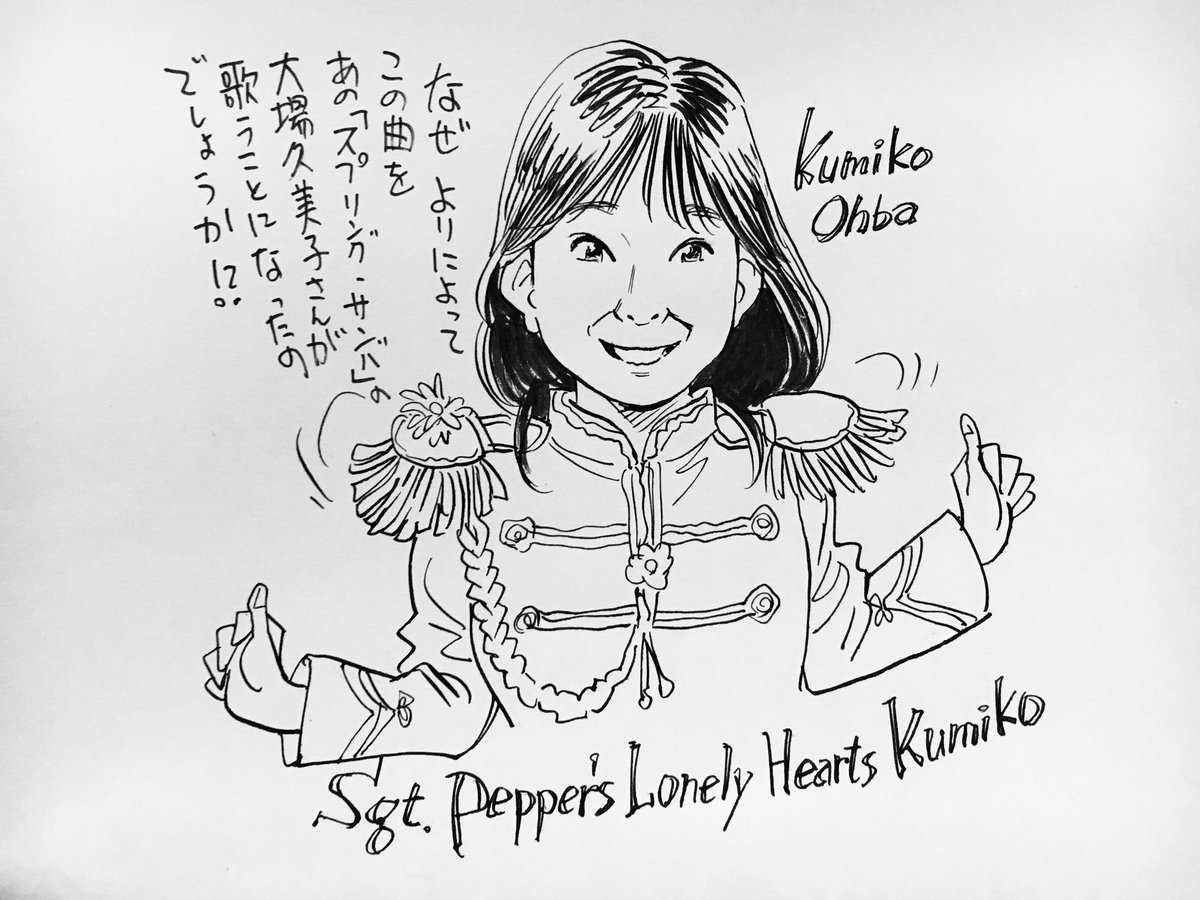 なぜ よりによって
この曲を
あの「スプリング・サンバ」の
大場久美子さんが
歌うことになったの
でしょうか!!
Kumiko
Ohba
Sgt. Pepper's Lonely Hearts Kumiko